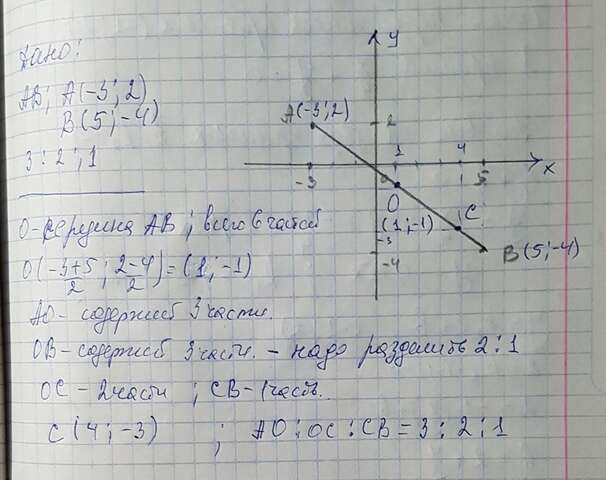 Дано:
AB; A(-3; 2)
B(5; -4)
3:2:1
O-середина AB; всего 6 частей
O(-3+5/2; 2-4/2) = (1; -1)
AO - содержит 3 части.
OB - содержит 3 части. - надо разделить 2:1
OC - 2 части; CB - 1 часть.
C(4; -3) ; AO:OC:CB = 3:2:1
y
A(-3; 2)
2
1
4
-3
5
x
O
(1; -1)
C
-3
-4
B(5; -4)